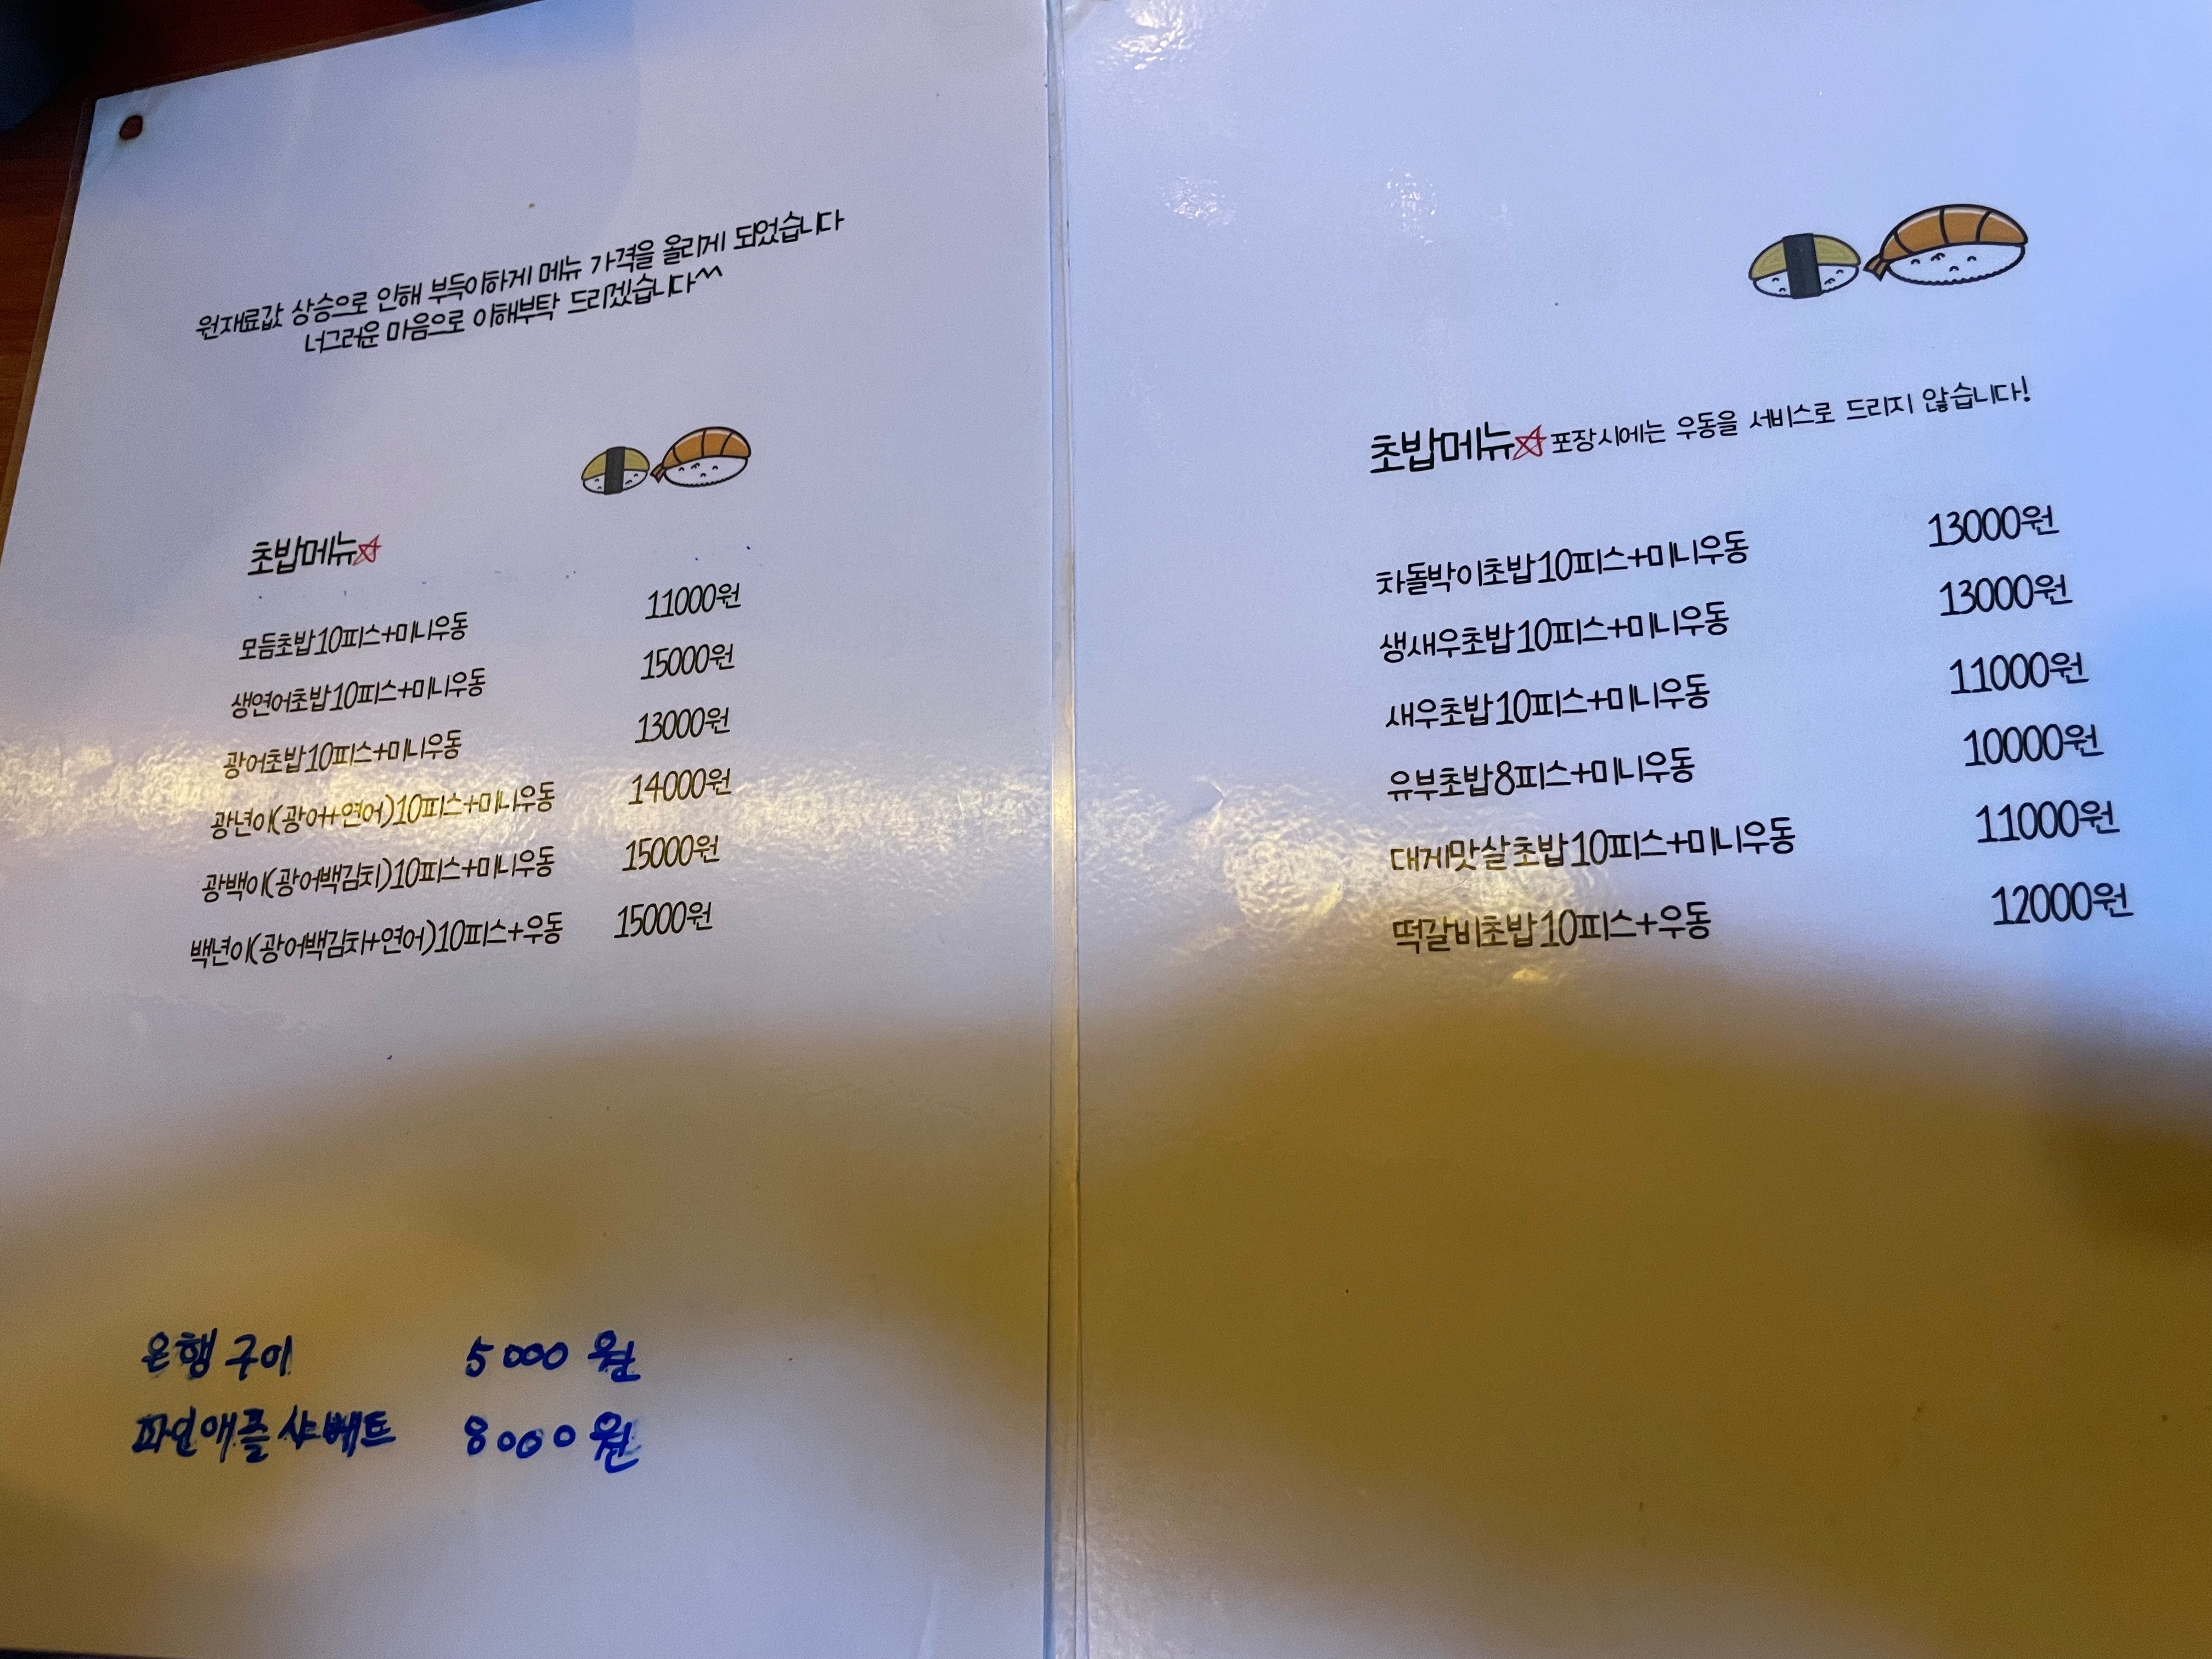 원재료값 상승으로 인해 부득이하게 메뉴 가격을 올리게 되었습니다
너그러운 마음으로 이해부탁 드리겠습니다^^
초밥메뉴
모듬초밥10피스+미니우동 11000원
생연어초밥10피스+미니우동 15000원
광어초밥10피스+미니우동 13000원
광년이(광어+연어)10피스+미니우동 14000원
광백이(광어백김치)10피스+미니우동 15000원
백년이(광어백김치+연어)10피스+우동 15000원
은행구이 5000원
파인애플 샤베트 8000원
초밥메뉴 포장시에는 우동을 서비스로 드리지 않습니다!
차돌박이초밥10피스+미니우동 13000원
생새우초밥10피스+미니우동 13000원
새우초밥10피스+미니우동 11000원
유부초밥8피스+미니우동 10000원
대게맛살초밥10피스+미니우동 11000원
떡갈비초밥10피스+우동 12000원